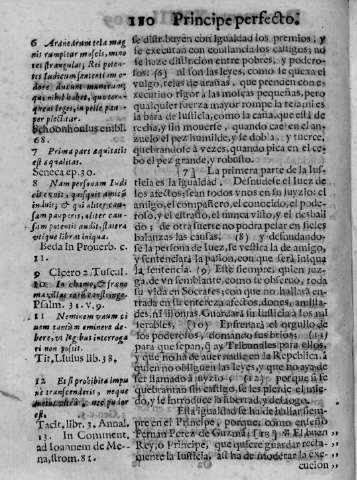 110 Principe perfecto.
6 Aranearum tela mag
nis rumpitur muscis, mino
res strangulat; Rei poten-
tis Iudicum sententiam o-
dore ducunt numerum,
qui nihil habet, quotcun-
que ad leges, in pelle pau-
per plectitur.
Schoonhouius embl.
68.
7 Prima pars æquitatis
est æqualitas.
Seneca ep. 30.
8 Nam personam Iudi
causam pauperis, aliter cau-
sam potentis audit, statera
utique librat iniqua.
Beda in Prouerb. c.
11.
9 Cicero 2. Tuscul.
10 In chamo, & fræno
maxillas eorum constringe
Psalm. 31. v. 9.
11 Neminem vnum ci
uem tantùm eminere de-
bere, vt legibus interroga
ri non possit.
Tit. Liuius lib. 38.
12 Et si prohibita impu
ne transcenderis, neque
metus vltra, neque pudor
est.
Tacit. lib. 3. Annal.
13. In Comment.
ad Ioannem de Me-
na, strom. 81.
se distribuyen con igualdad los premios; y
se executan con constancia los castigos; no
se haze distincion entre pobres, y podero-
sos: (6) ni son las leyes, como se quexa el
vulgo, telas de arañas, que prenden con e-
xecutivo rigor a las moscas pequeñas, pero
qualquier fuerza mayor rompe la tela; ni es
la bara de Iusticia, como la caña, que està de
recha, y sin mouerse, quando cae en el an-
zuelo el pez humilde, y se dobla, y tuerce,
quebrandose à vezes, quando pica en el ce-
bo el pez grande, y robusto.
[7] La primera parte de la Ius-
ticia es la igualdad. Desnudese el Iuez de
los afectos, sean todos vnos en su juyzio: el
amigo, el compañero, el conocido, el pode-
roso, y el estraño, el nunca visto, y el desbali
do; de otra suerte no podrà pesar en fieles
balanzas las causas. (8) y desnudando-
se la persona de Iuez, se vestirà la de amigo,
y sentenciarà la passion, con que serà iniqua
la sentencia. (9) Este siempre, quien juz-
ga, de vn semblante, como se obseruò, toda
la vida en Socrates: con que no hallaràn en-
trada en su entereza afectos, dones, amista-
des, ni lisonjas. Guardarà su Iusticia a los mi
serables, (10) Enfrenarà el orgullo de
los poderosos, domando sus brios; (11)
para que sepan, que ay Tribunales para ellos,
y que no ha de auer nadie en la Republica, à
quien no obliguen las leyes, y que no aya de
ser llamado à juyzio: (12) porque si se
quebrantan sin castigo, se les pierde el mie-
do, y se introduce la libertad, y desahogo.
Esta igualdad se ha de hallar siem-
pre en el Principe, porque, como enseñò
Fernan Perez de Guzmàn: (13) „ El buen
Rey, ò Principe, que quiere guardar recta-
mente la Iusticia, assi ha de moderar la exe-
cucion